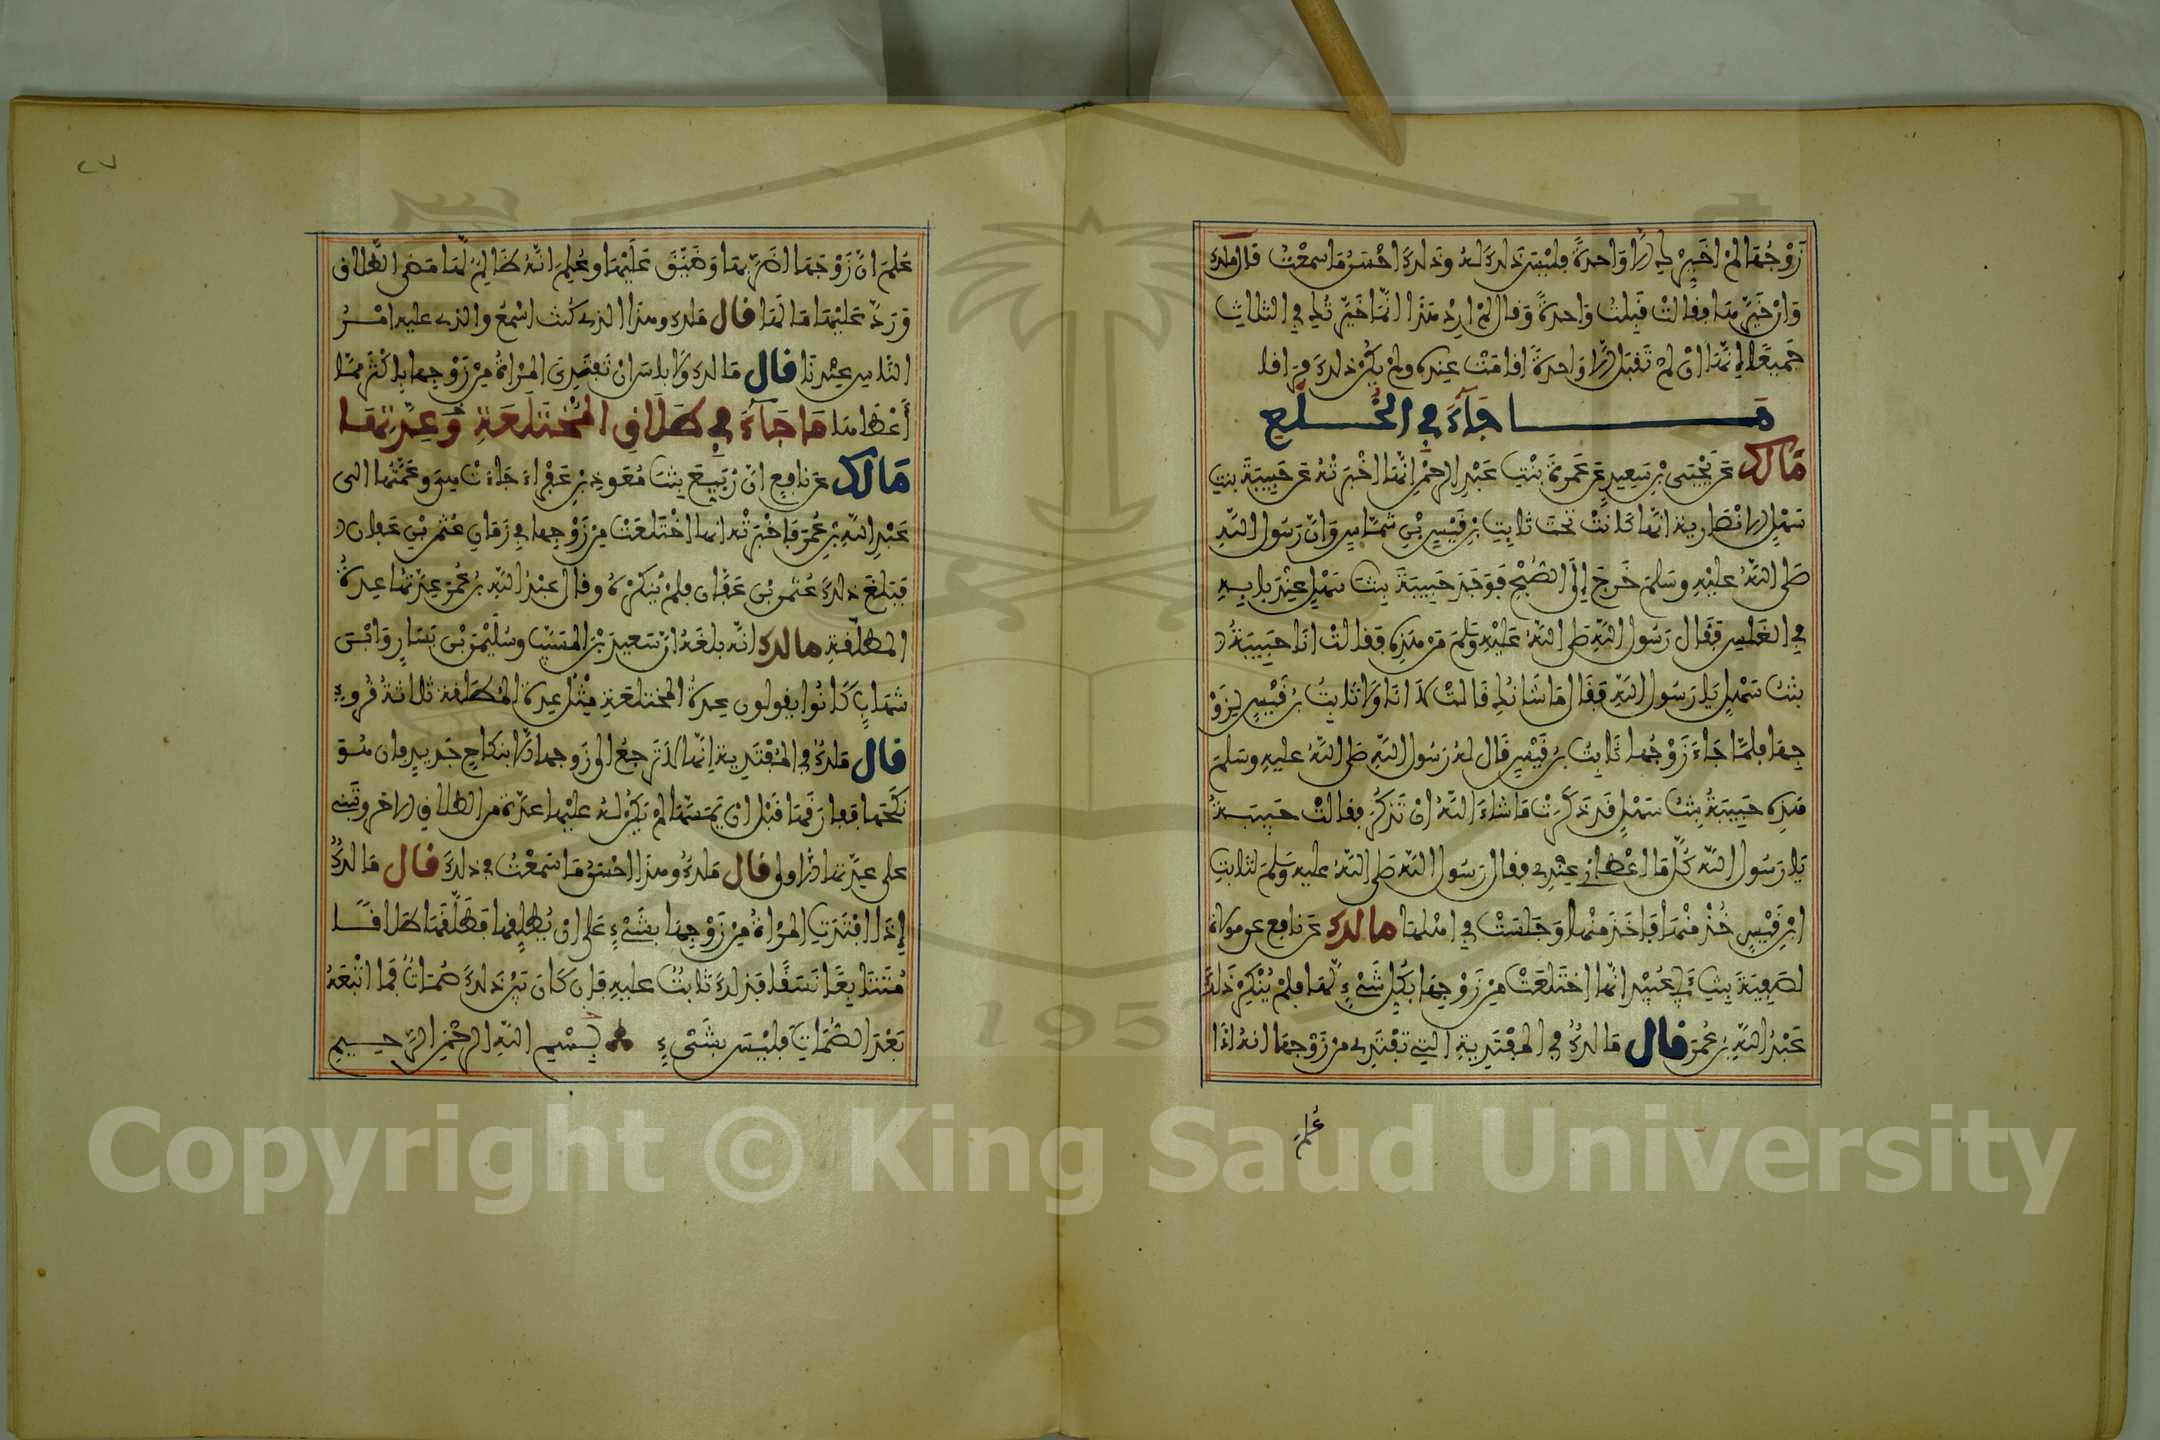 زَوْجُهَا لم اخَيِّرْكِ الا وَاحِدَةً فليْسَ ذلك له وذلك احْسَنُ ما سمعْتُ قال مالك
وَان خَيَّرَهَا فقالت قَبِلْتُ وَاحِدَةً وقال لم ارد هذا انما خَيَّرْتُكِ في الثلاث
جَمِيعًا انها ان لم تَقْبَل الا وَاحِدَةً اقامَتْ عنده ولم يكن ذلك فراقا
مَا جَآءَ في الخُلع
مَالك عن يَحْيَى بن سَعِيدٍ عن عَمرة بنت عَبْد الرحمٰن انها اخْبَرَتْه عن حَبِيبَةَ بنت
سَهْلٍ الانصارية انها كَانَتْ تحت ثابت بن قَيْس بن شَمَّاسٍ وَانَّ رَسُول الله
صَلى اللهُ عليْهِ وسَلم خَرَجَ إلَى الصُّبْحِ فَوَجَدَ حَبيبَةَ بنت سَهْلٍ عِنْدَ بابه
في الغَلَسِ فقَال رَسُول الله صَلى الله عَليْهِ وَسَلم مَن هَذِه فقالتْ انَا حَبِيبَةُ
بنْتُ سَهْلٍ يا رَسُول الله فقَال مَا شَانُكِ قَالتْ لا انا ولا ثابتُ بن قَيْسٍ لِزَوْ
جِهَا فلمَّا جَاءَ زَوْجُهَا ثَابِتُ بن قَيْسٍ قَال له رَسُول الله صَلى اللهُ عليهِ وسَلم
هَذِه حَبيبَةُ بنتُ سَهْلٍ قد ذكَرَتْ مَا شاءَ اللهُ ان تَذْكُرَ فقالتْ حَبيبَةُ
يا رَسُول الله كُلُّ مَا اعْطَانِي عِنْدِي فقال رَسُول الله صَلى اللهُ عليه وسَلم لثابت
ابن قَيْسٍ خُذْ مِنْهَا فاخَذَ مِنْها وَجَلَسَتْ في اهْلها مالك عن نافع عن مولاة
لصَفِيَّةَ بنت أبي عُبَيْد انها اختَلَعَتْ مِن زَوْجِهَا بكُل شَيْءٍ لهَا فلم يُنْكِرْ ذَلكَ
عَبْدُ اللهِ بن عُمَرَ قال مَالكُ في المفْتَدِيةِ التي تفْتَدِي من زَوْجِهَا انهُ اذَا
عُلِمَ
٢٧
عُلِمَ انَّ زَوْجَهَا اضَرَّ بهَا وَضَيَّقَ عَلَيْهَا وعُلِمَ انَّهُ ظَالِمٌ لَّهَا مَضَى الطَّلاق
وَرَدَّ عَليْهَا مَا لَهَا قال مَالك وهذا الذي كُنتُ اسْمَعُ والذي عليه امْرُ
النَّاسِ عِنْدنَا قال مَالك وَلا باس ان تفتدِيَ المرْاةُ مِن زَوْجِها باكْثَر ممَّا
أَعْطَاهَا مَا جَآءَ في طَلَاقِ المُخْتَلِعَةِ وَعِدَّتِهَا
مَالك عن نافِعٍ انَّ رُبَيِّعَ بنْتَ مُعَوِّذِ بن عَفْرَاءَ جَاءَتْ هِيَ وعَمَّتُهَا الى
عَبْدِ اللهِ بن عُمَرَ فَاخْبَرَتْه انها اخْتَلَعَتْ مِن زَوْجِها في زَمَانِ عُثْمٰن بن عَفَّان
فَبَلَغَ ذلك عُثمٰن بن عَفَّان فلمْ يُنْكِرْهُ وقال عبْدُ اللهِ بن عُمَرَ عِدَّتُهَا عِدةُ
المطلَّقَةِ مالك انَّه بلغَهُ ان سَعيدَ بن المسَيَّب وسُلَيْمٰن بن يَسَارٍ وَابْنَ
شهَابٍ كَانُوا يقولون عِدةُ المختلعَةِ مِثْلُ عِدةِ المُطَلقة ثلاثةُ قُروءٍ
قال مَالكُ في المُفْتَدِيةِ انَّها لا تَرجعُ الى زَوجها الا بنكاح جَديدٍ فان هُوَ
نَكَحَها ففارقَهَا قَبْل ان يَمَسَّهَا لم يَكُن له عليْها عدَّة من الطلاق الاخر وتَبْني
على عِدَّتها الاولى قال مَالكُ وهذا احْسَنُ مَا سَمعْتُ في ذلكَ قال مَالكُ
إذَا افْتَدَتِ المرْاةُ مِن زَوْجِهَا بشَيْءٍ عَلى ان يُطلِقَهَا فطَلَّقَهَا طَلَاقًا
مُتَتَابِعًا نَسَقًا فذلكَ ثابتٌ عليهِ فإن كَانَ بَيْن ذلكَ صُمَاتٌ فَمَا اتْبَعَهُ
بَعْدَ الصُّمَاتِ فليْسَ بشَيْءٍ بِسْمِ اللهِ الرحْمٰنِ الرَّحِيمِ
Copyright © King Saud University
1957